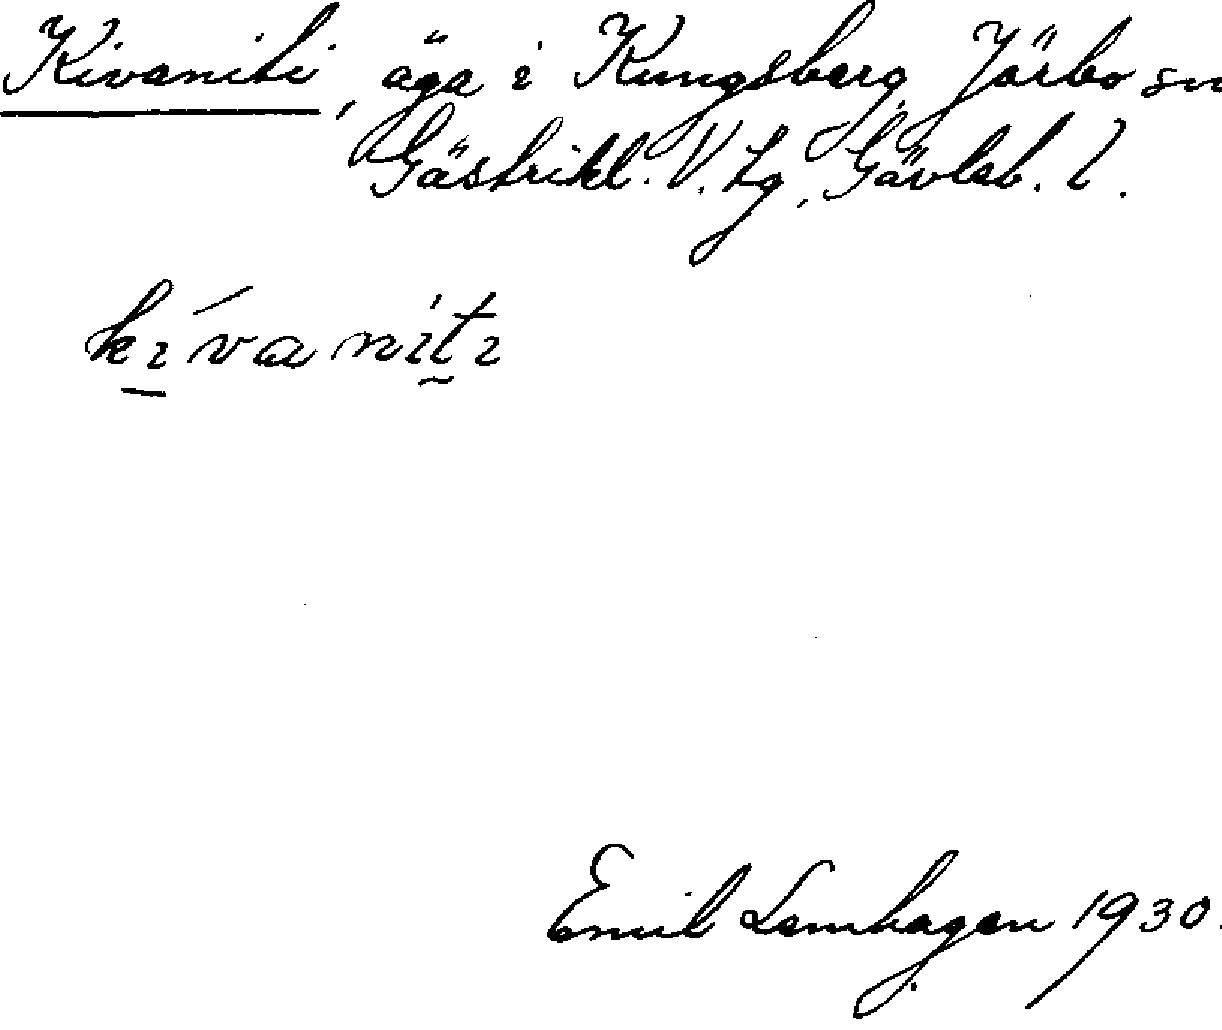 Kivaniti, äga i Kungsberg, Järbo sn
Gästrikl. V. tg, Gävleb. l.
kɪvanítɪ
Emil Lemhagen 1930.